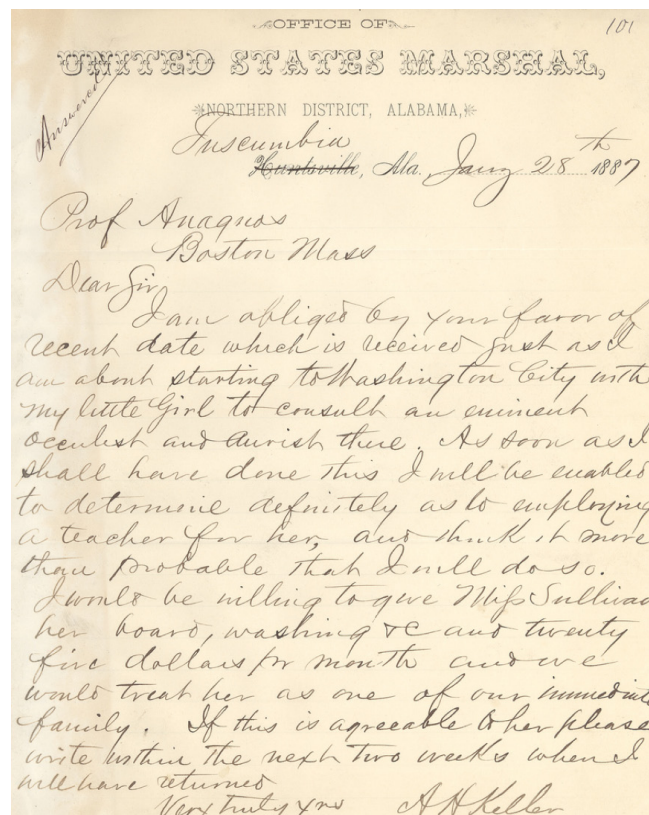 OFFICE OF
101
UNITED STATES MARSHAL,
Answered
NORTHERN DISTRICT, ALABAMA,
Tuscumbia
Huntsville, Ala. Jany 28th 1887
Prof Anagnos
Boston Mass
Dear Sir
I am obliged by your favor of
recent date which is received just as I
am about starting to Washington City with
my little Girl to consult an eminent
occulist and Aurish there. As soon as I
shall have done this I will be enabled
to determine definitely as to employing
a teacher for her, and think it more
than probable that I will do so.
I would be willing to give Miss Sullivan
her board, washing &c and twenty
five dollars pr month and we
would treat her as one of our immediate
family. If this is agreeable to her please
write within the next two weeks when I
will have returned
Very truly yrs A H Keller